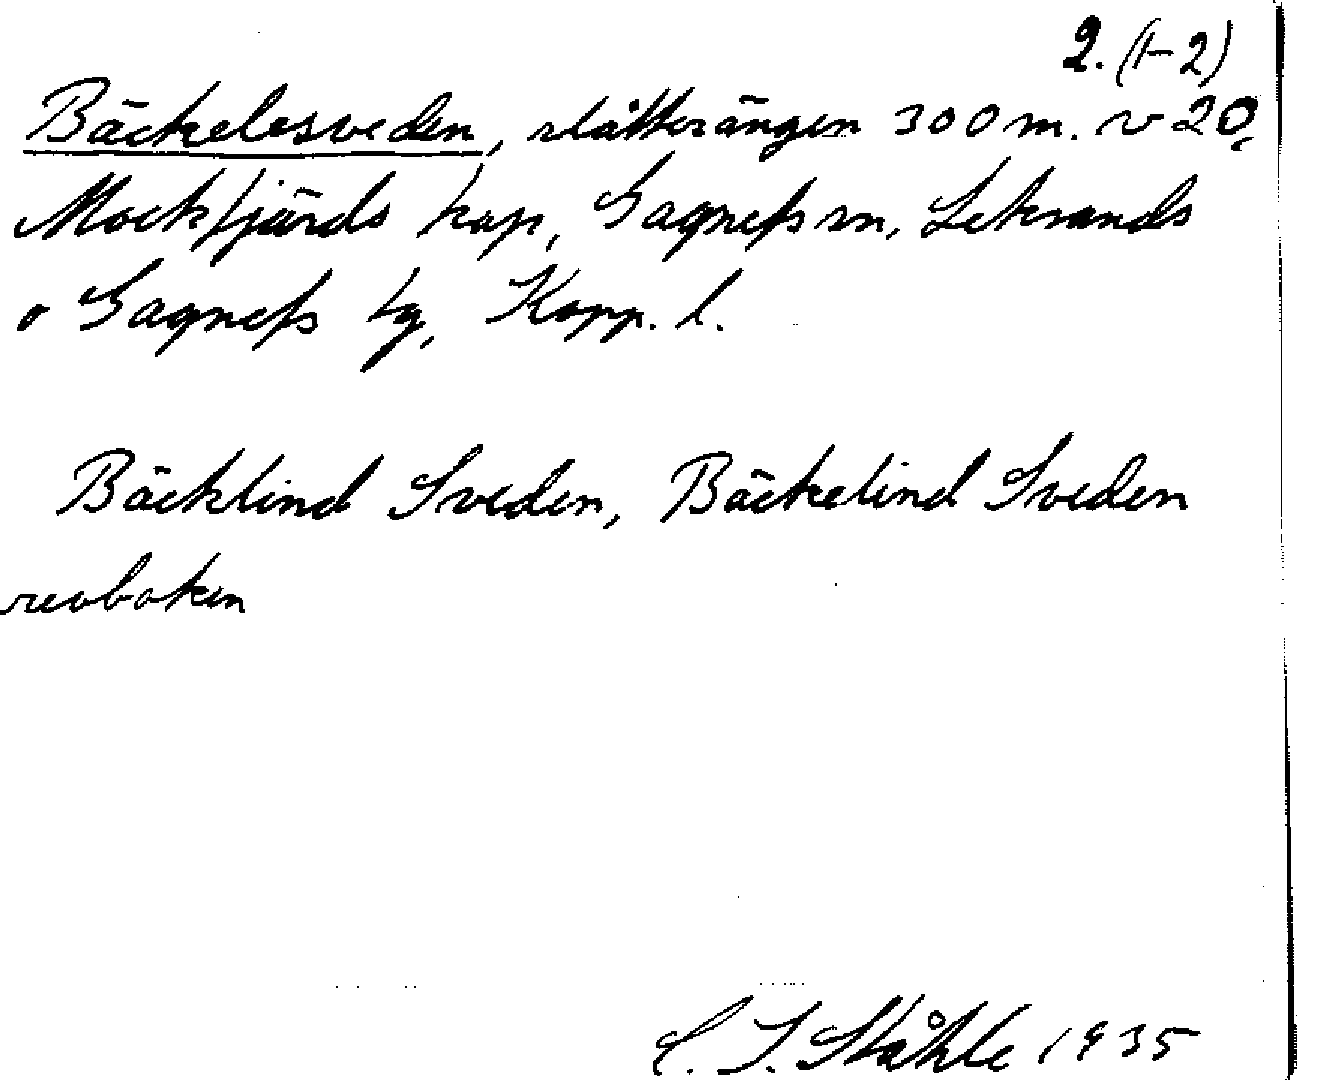 2. (1-2)
Bäckelesveden, slåtterängen 300 m. v 20,
Mockfjärds kap, Gagnefs sn, Leksands
o Gagnefs tg, Kopp. l.
Bäcklind Sveden, Bäckelind Sveden
revboken
C. I. Ståhle 1935